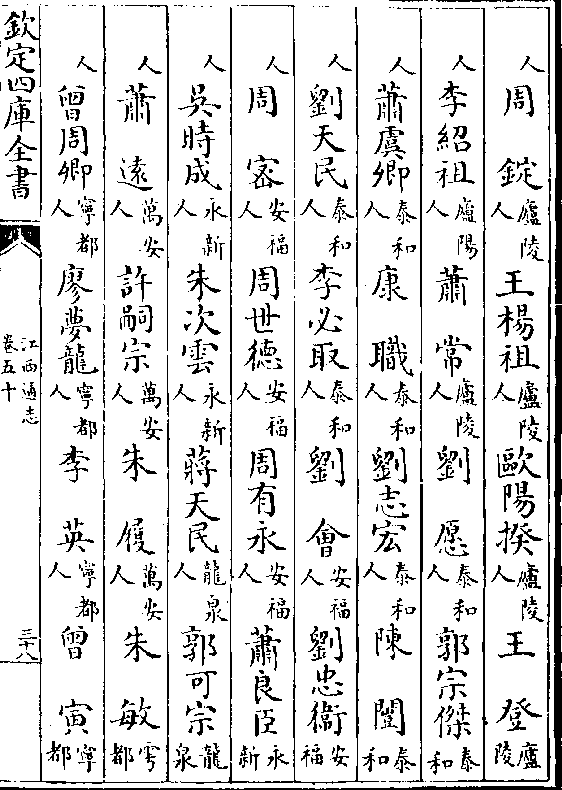 人周錠廬陵人王楊祖廬陵人歐陽揆廬陵人王登廬陵
人李紹祖廬陽人蕭常廬陵人劉愿泰和人郭宗傑泰和
人蕭虞卿泰和人康職泰和人劉志宏泰和人陳閶泰和
人劉天民泰和人李必取泰和人劉會安福人劉忠衛安福
人周密安福人周世德安福人周有永安福人蕭良臣永新
人吳時成永新人朱次雲永新人蔣天民龍泉人郭可宗龍泉
人蕭遠萬安人許嗣宗萬安人朱履萬安人朱敏寧都
人曾周卿寧都人廖夢龍寧都人李英寧都人曾寅寧都
欽定四庫全書
江西通志
卷五十
三十八